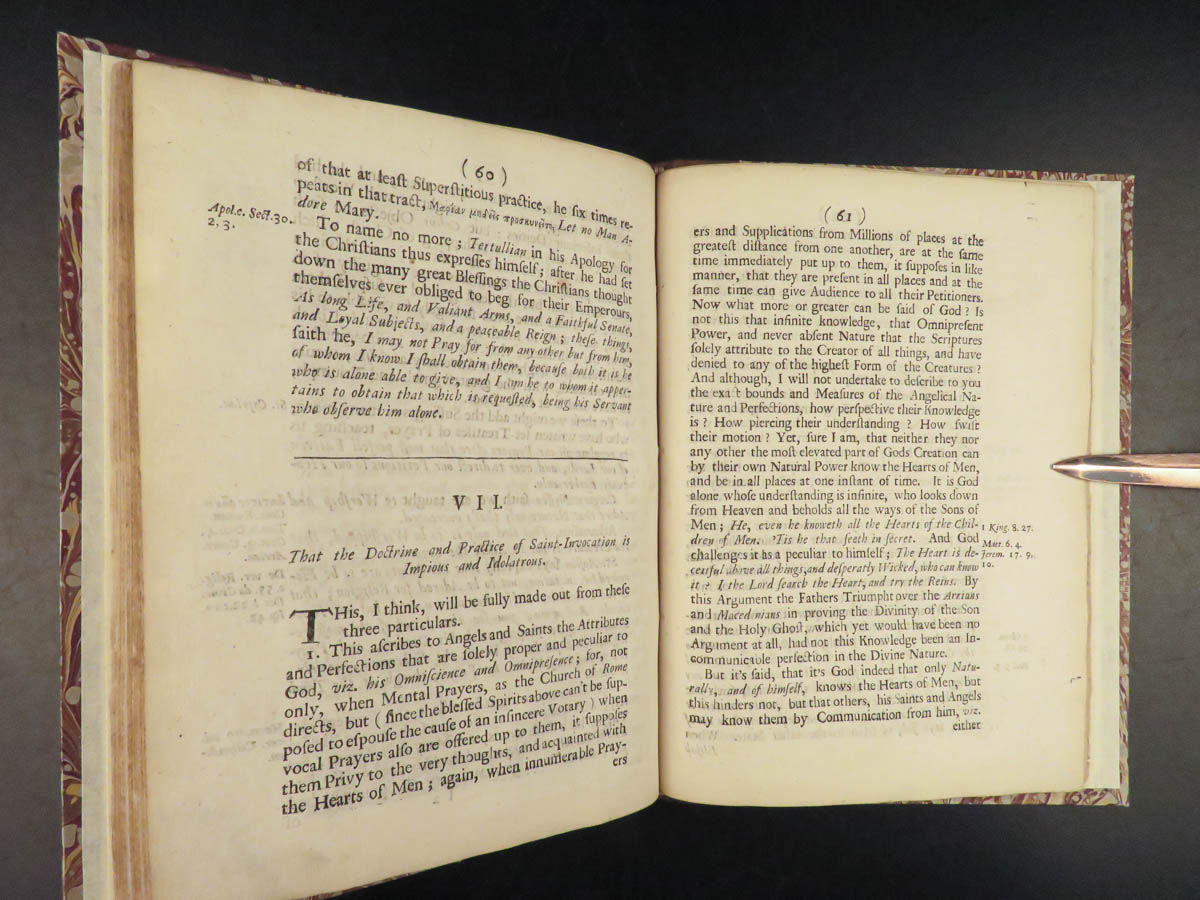 ( 60 )
of that at leaſt Superſtitious practice, he ſix times re-
peats in that tract, Μαρίαν μηδεὶς προσκυνείτω, Let no Man A-
dore Mary.
Apol. c. Sect. 30.
2, 3.
To name no more ; Tertullian in his Apology for
the Chriſtians thus expreſſes himſelf ; after he had ſet
down the many great Bleſſings the Chriſtians thought
themſelves ever obliged to beg for their Emperours,
As long Life, and Valiant Arms, and a Faithful Senate,
and Loyal Subjects, and a peaceable Reign ; theſe things,
ſaith he, I may not Pray for from any other but from him,
of whom I know I ſhall obtain them, becauſe both it is he
who is alone able to give, and I am he to whom it apper-
tains to obtain that which is requeſted, being his Servant
who obſerve him alone.
VII.
That the Doctrine and Practice of Saint-Invocation is
Impious and Idolatrous.
THis, I think, will be fully made out from theſe
three particulars.
1. This aſcribes to Angels and Saints the Attributes
and Perfections that are ſolely proper and peculiar to
God, viz. his Omniſcience and Omnipreſence ; for, not
only, when Mental Prayers, as the Church of Rome
directs, but ( ſince the bleſſed Spirits above can't be ſup-
poſed to eſpouſe the cauſe of an inſincere Votary ) when
vocal Prayers alſo are offered up to them, it ſuppoſes
them Privy to the very thoughts, and acquainted with
the Hearts of Men ; again, when innumerable Pray-
ers
( 61 )
ers and Supplications from Millions of places at the
greateſt diſtance from one another, are at the ſame
time immediately put up to them, it ſuppoſes in like
manner, that they are preſent in all places and at the
ſame time can give Audience to all their Petitioners.
Now what more or greater can be ſaid of God ? Is
not this that infinite knowledge, that Omnipreſent
Power, and never abſent Nature that the Scriptures
ſolely attribute to the Creator of all things, and have
denied to any of the higheſt Form of the Creatures ?
And although, I will not undertake to deſcribe to you
the exact bounds and Meaſures of the Angelical Na-
ture and Perfections, how perſpective their Knowledge
is ? How piercing their underſtanding ? How ſwift
their motion ? Yet, ſure I am, that neither they nor
any other the moſt elevated part of Gods Creation can
by their own Natural Power know the Hearts of Men,
and be in all places at one inſtant of time. It is God
alone whoſe underſtanding is infinite, who looks down
from Heaven and beholds all the ways of the Sons of
Men ; He, even he knoweth all the Hearts of the Chil-
dren of Men. 'Tis he that ſeeth in ſecret. And God
challenges it as a peculiar to himſelf ; The Heart is de-
ceitful above all things, and deſperatly Wicked, who can know
it ? I the Lord ſearch the Heart, and try the Reins. By
1 King. 8. 27.
Mat. 6. 4.
Jerem. 17. 9.
10.
this Argument the Fathers Triumpht over the Arrians
and Macedonians in proving the Divinity of the Son
and the Holy Ghoſt, which yet would have been no
Argument at all, had not this Knowledge been an In-
communicable perfection in the Divine Nature.
But it's ſaid, that it's God indeed that only Natu-
rally, and of himſelf, knows the Hearts of Men, but
this hinders not, but that others, his Saints and Angels
may know them by Communication from him, viz.
either